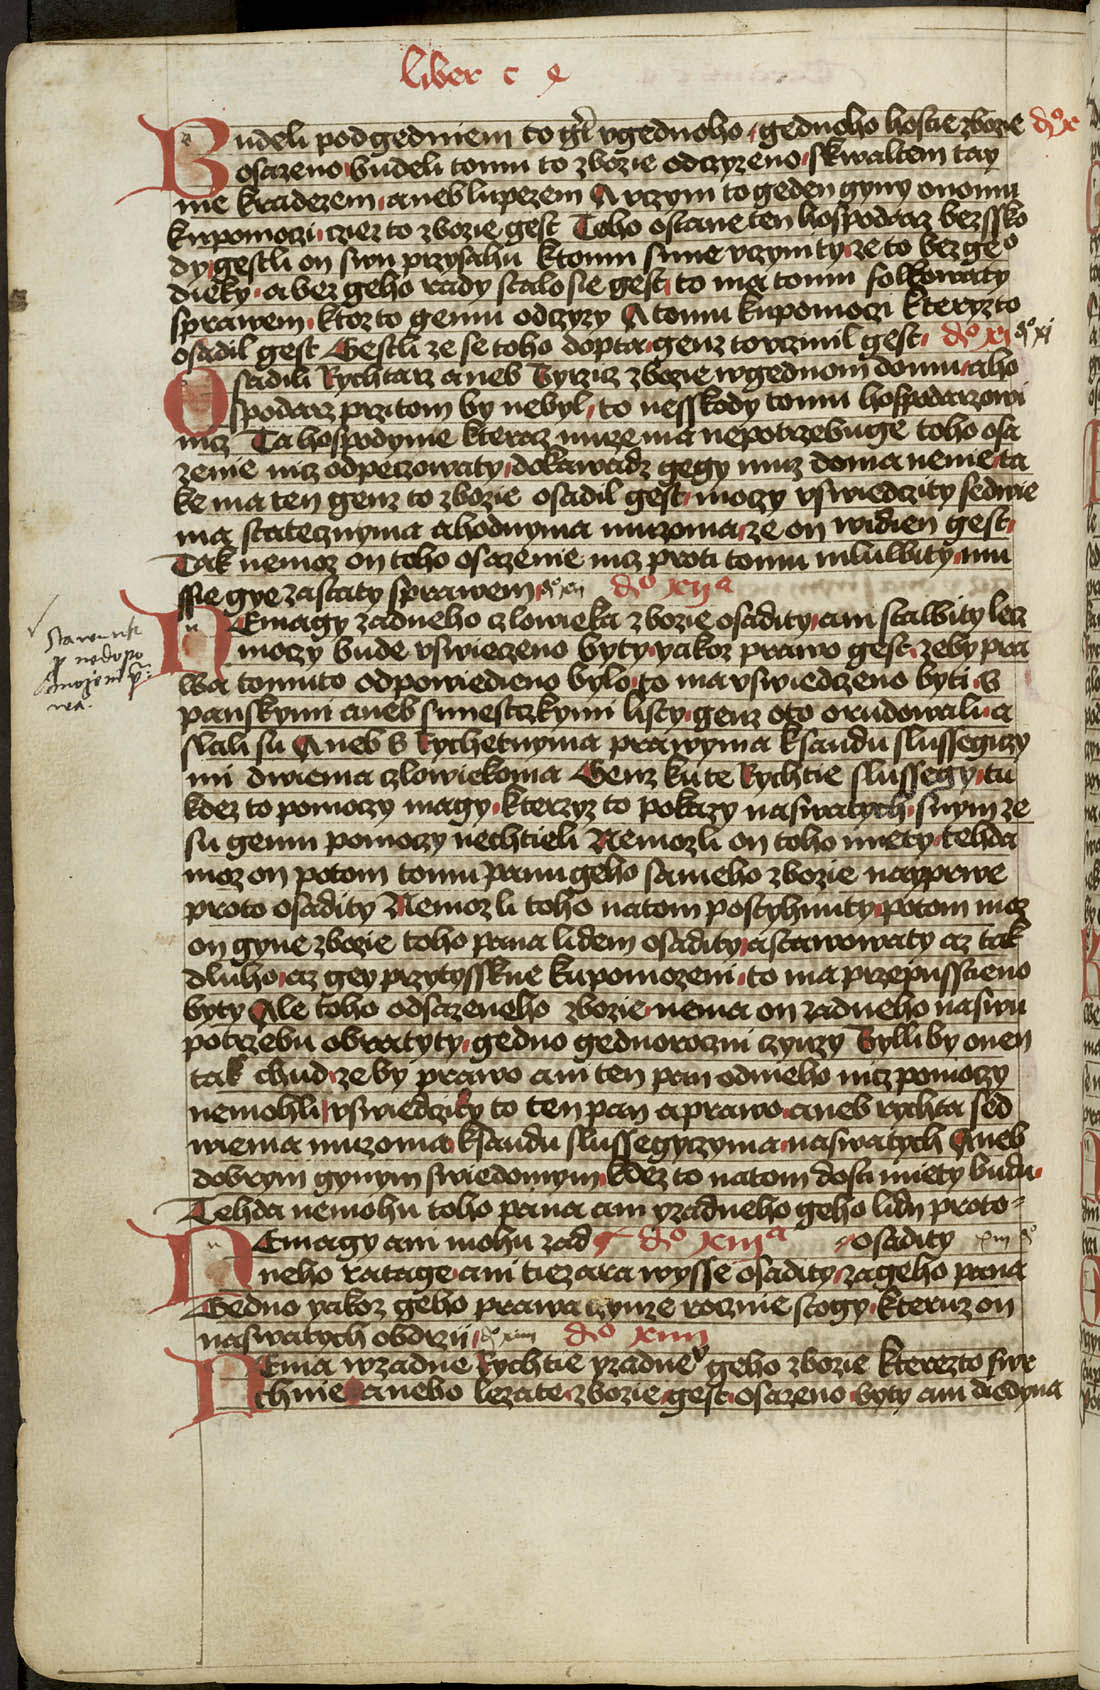 liber c
Budeli podgedniem to gt ygednoho gednoho hoscie zbozie do x
osazeno budeli tomu to zbozie odczyzeno skwaltem tay
nie kradezem aneb lupezem A vczym to geden gyny onomu
kupomoczi cziez to zbozie gest Toho ostane ten hospodarz bezssko
dy gestli on swu przysahu ktomu smie vczynity ze to bez geo
dieky a bez geho rady stalo sie gest to ma tomu folkowaty
sprawem ktoz to gemu odczyzy A tomu kupomoczi kteryzto
osadil gest Gestli ze se toho dopta genz to vczinil gest do xi do xi
Osadili Rychtarz aneb zbozie wgednom domu aho
spodarz przitom by nebyl to nesskody tomu hospodarzowi
nicz Ta hospodynie kteraz muze ma nepotrzebuge toho osa
zenie nicz odpeczowaty dokawadz gegy muz doma nenie ta
ke ma ten genz to zbozie osadil gest moczy vswiedczity sedwie
ma statecznyma ahodnyma muzoma ze on widien gest
Tak nemoz on toho osazenie nicz proti tomu mluwity mu
sie gye zastaty sprawem do xii do xii a
NEmagy zadneho czlowieka zbozie osadity ani stawity lecz
moczy bude vswieczeno byty yakoz prawo gest zeby pra
wa tomuto odpowiedieno bylo to ma vswiedczeno byti s
panskymi aneb smiestczkymi listy genz oto orudowalu a
slali su Aneb s Rychetnyma prawyma ksandu slussegiczy
mi dwiema czlowiekoma Genz kute Rychtie slussegy tu
kdez to pomoczy magy kterzyz to pokazy naswatych swym ze
su gemu pomoczy nechtieli Nemozli on toho miety tehda
moz on potom tomu panu geho sameho zbozie nayprwe
proto osadity Nemoz li toho natom postyhnuty potom moz
on gyne zbozie toho pana lidem osadity astawowaty az tak
dluho az gey przytysskne kupomozeni to ma przepusstieno
byty Ale toho odsazeneho zbozie nema on zadneho naswu
potrzebu obratyty gedno gednoroczni czynzy Bylliby onen
tak chud zeby prawo ani ten pan odnieho nicz pomoczy
nemohli vswiedczity to ten pan aprawo aneb rychta sed
wiema muzoma ksandu slussegyczyma naswatych Aneb
dobrym gynym swiedomym kdez to natom dosti miety budu
Tehda nemohu toho pana ani yzadneho geho lidu proto
NEmagy ani mohu zad do xiii a osadity xiii do
neho ratage ani tiezara wysse osadity zageho pana
Gedno yakoz geho prawa czynze rocznie stogy kteruz on
naswatych obdrzii do xiiii do xiiii
NEma wzadne Rychtie yzadne geho zbozie kterezto swr
chnie anebo lezate zbozie gest osazeno byty ani diedyna